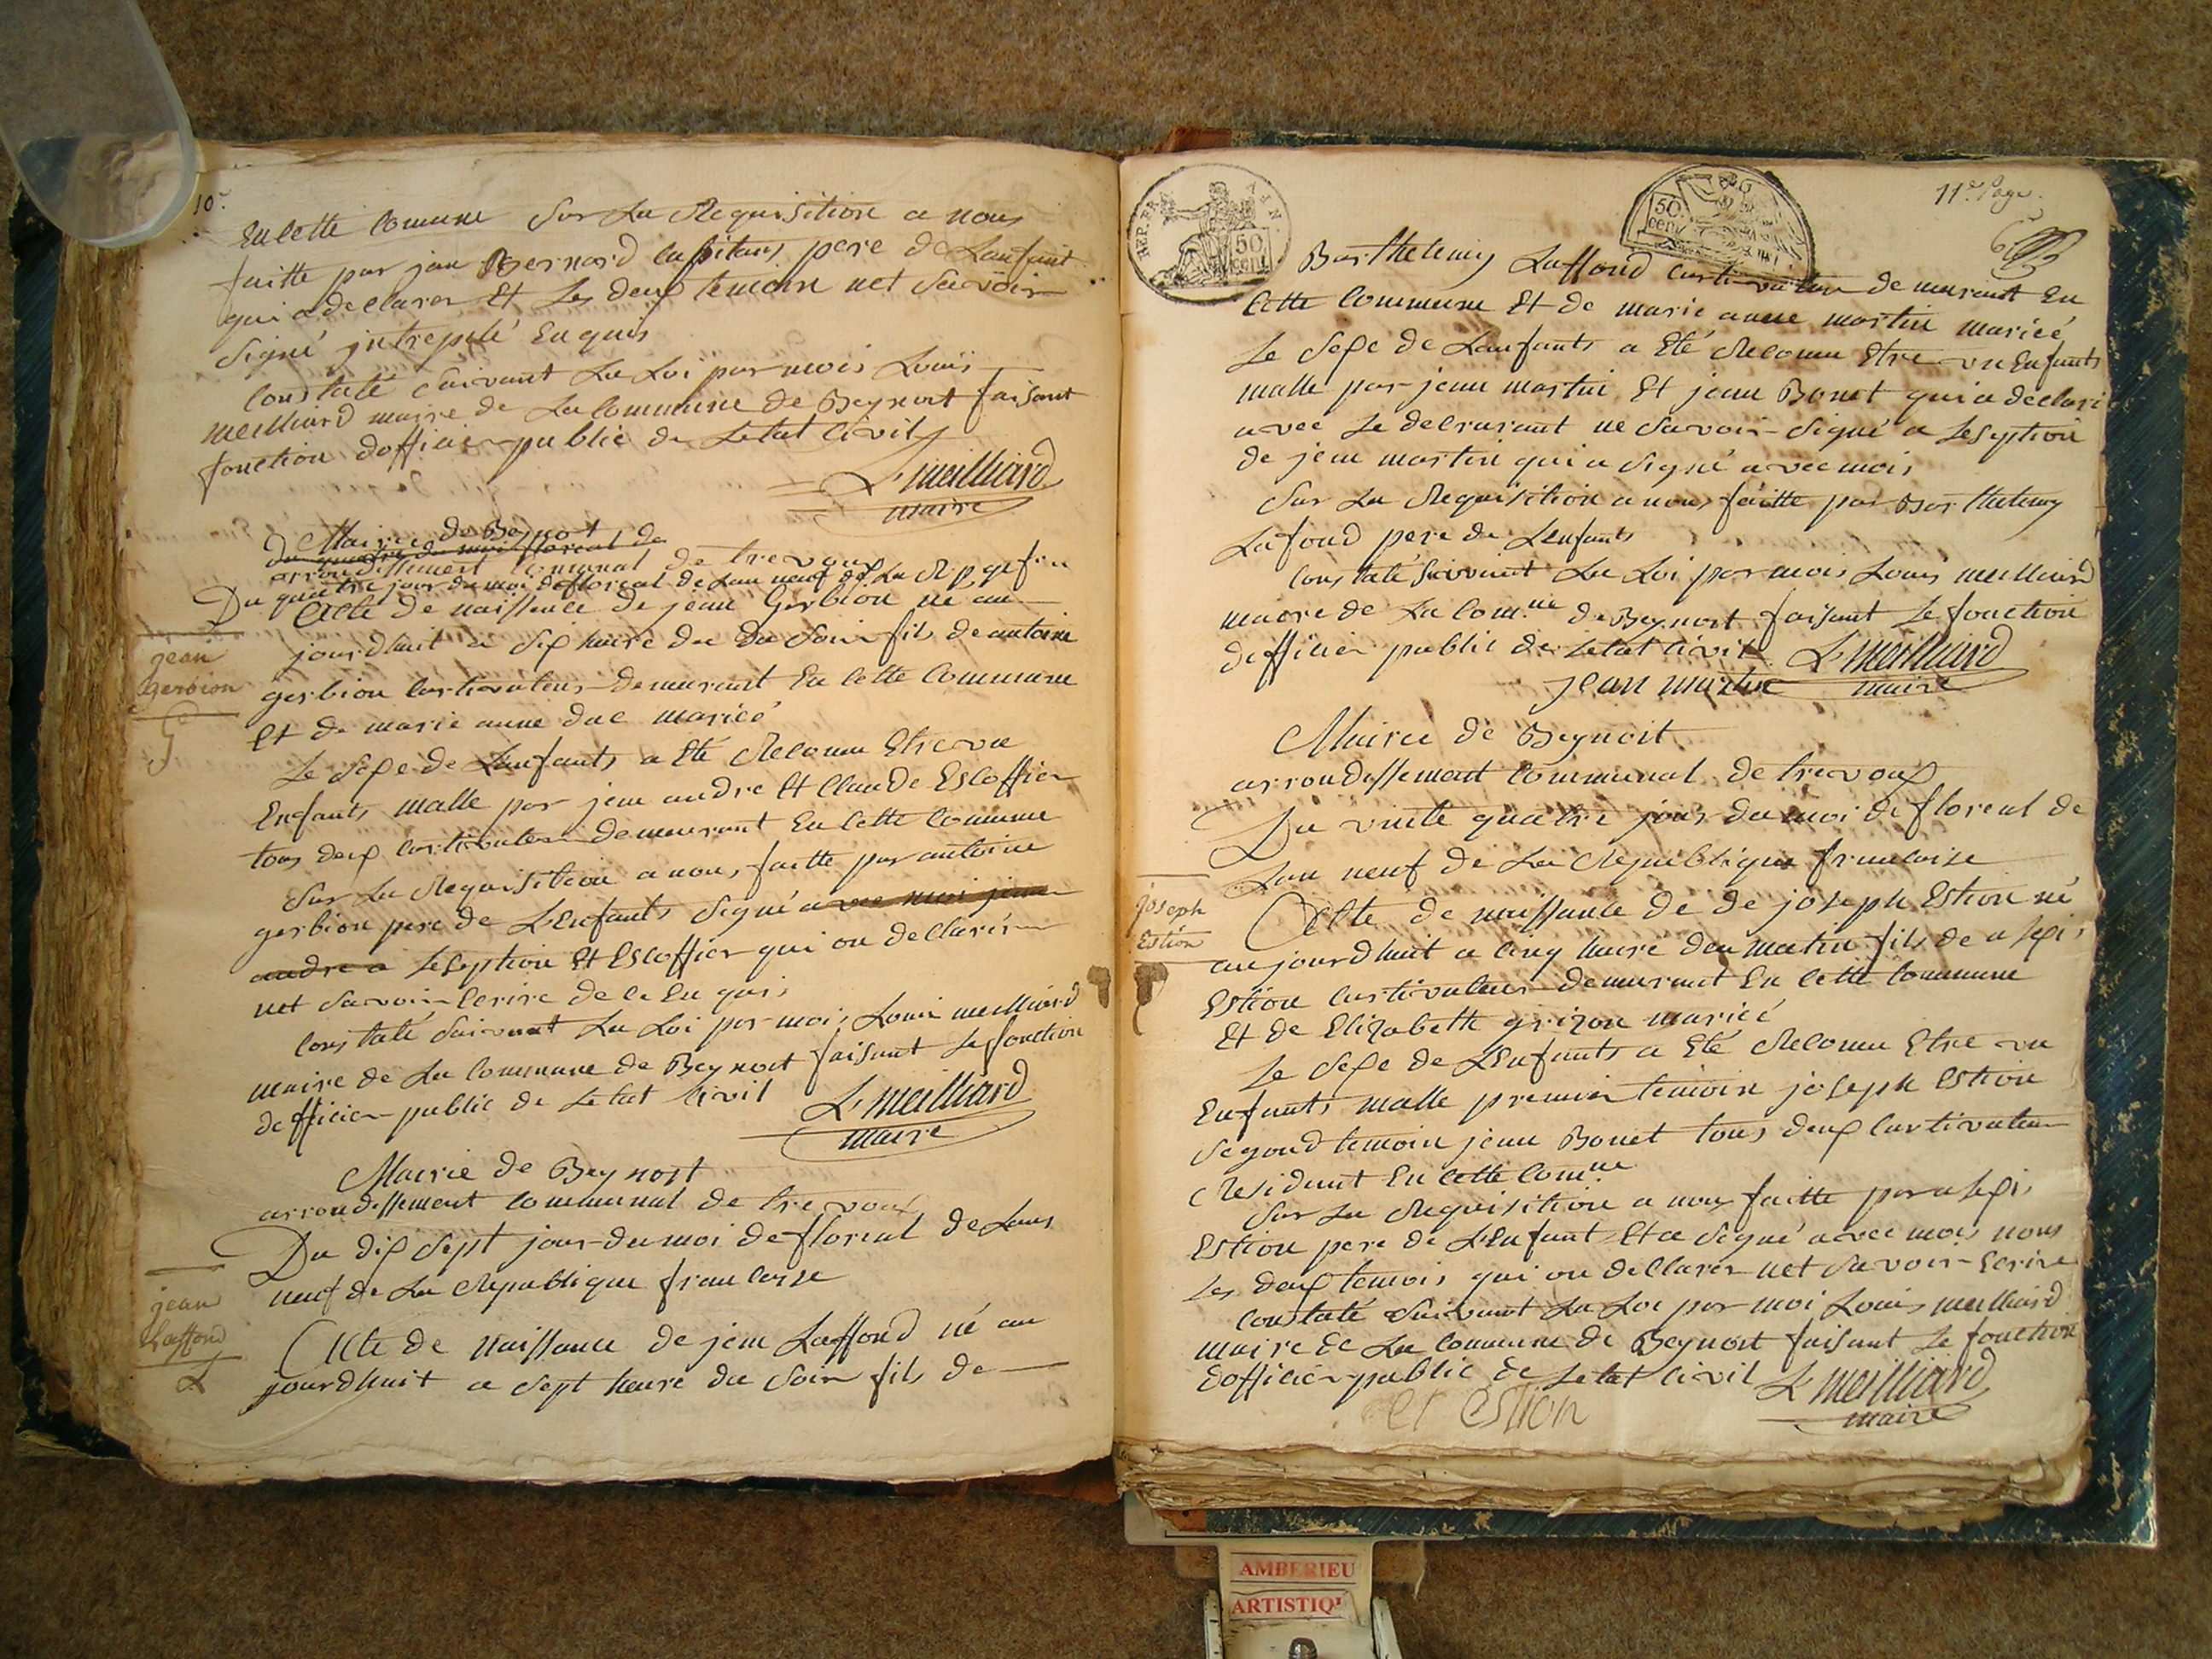 10.
En cette Comune Sur La Requisition a nous
faitte par jan Bernard Capitans pere de Lanfant
qui a declarer Et Les deux temoin net Savoir
Signé jntrepelé Enquis
Constaté Suivant La Loi par mois Louis
meilliard maire de La Commune de Beynost faisant
fonction dofficier public de Letat Civil
L. meilliard
maire
Mairie de Beynost
Du quatre du moi floreal de
arrondissement Comunal de trevoux
Du quatre jour du moi de floreal de Lan neuf de La Rp
Acte de naissence de jean Gerbion né au
jourdhuit a six heure du du Soir fils de antoine
jean
gerbion
G
gerbion Curtivateur demurant En Cette Commune
Et de marie anne duc mariéé
Le Sexe de Lanfants a Eté Reconu Etre un
Enfants malle par jean andre Et Claude Escoffier
tous deux Curtivateur demeurant En Cette Comune
Sur La Requisition a nous faitte par antoine
gerbion pere de LEnfants Signé avec moi jean
andre a LeSeption Et EScoffier qui on declarér
net Savoir Ecrire de Ce Enquis
Constaté Suivant La Loi par moi Louis meilliard
maire de La Commune de Beynost faisant Le fonction
defficier public de Letat Civil
L. meilliard
maire
Mairie de Beynost
arrondissement Communal de trevoux
Du dix Sept jour du moi de floreal de Lans
neuf de La Republique francaise
jean
Laffond
L
Acte de Naissance de jean Laffond né au
jourdhuit a Sept heure du Soir fils de
REP. FRA.
50 cent.
50. cen.
11e. Page.
Barthelemy Laffond Curtivateur demurant En
Cette Commune Et de marie anne martin mariéé
Le Sexe de Lanfants a Eté Reconu Etre un Enfants
malle par jean martin Et jean Bonet qui a declaré
avec Le decrarant ne Savoir Signé a LeSeption
de jean martin qui a Signé avec mois
Sur La Requisition a nous faitte par Barthelemy
Lafond pere de LEnfants
Constaté Suivant La Loi par mois Louis meilliard
maire de La Com.ne de Beynost faisant Le fonction
defficier public de Letat Civil
L. meilliard
maire
jean martin
Mairie de Beynost
arrondissement Communal de trevoux
Du vinte quatre jour du moi de floreal de
Lan neuf de La Republique francaise
joseph
Estion
Acte de naissance de de joseph Estion né
aujourdhuit a cinq heure du matin fils de alexi
Estion Curtivateur demurant En Cette Commune
Et de Elizabette grizon mariéé
Le Sexe de LEnfants a Eté Reconu Etre un
Enfants malle premier temoin joseph Estion
Segond temoin jean Bonet tous deux Curtivateur
Resident En Cette Com.ne
Sur La Requisition a nous faitte par alexi
Estion pere de LEnfant Et a Signé avec mois nons
Les deux temois qui on declarer net Savoir Ecrire
Constaté Suivant La Loi par moi Louis meilliard
maire de La Commune de Beynost faisant Le fonction
dofficier public de Letat Civil
L. meilliard
maire
et estion
AMBERIEU
ARTISTIQ